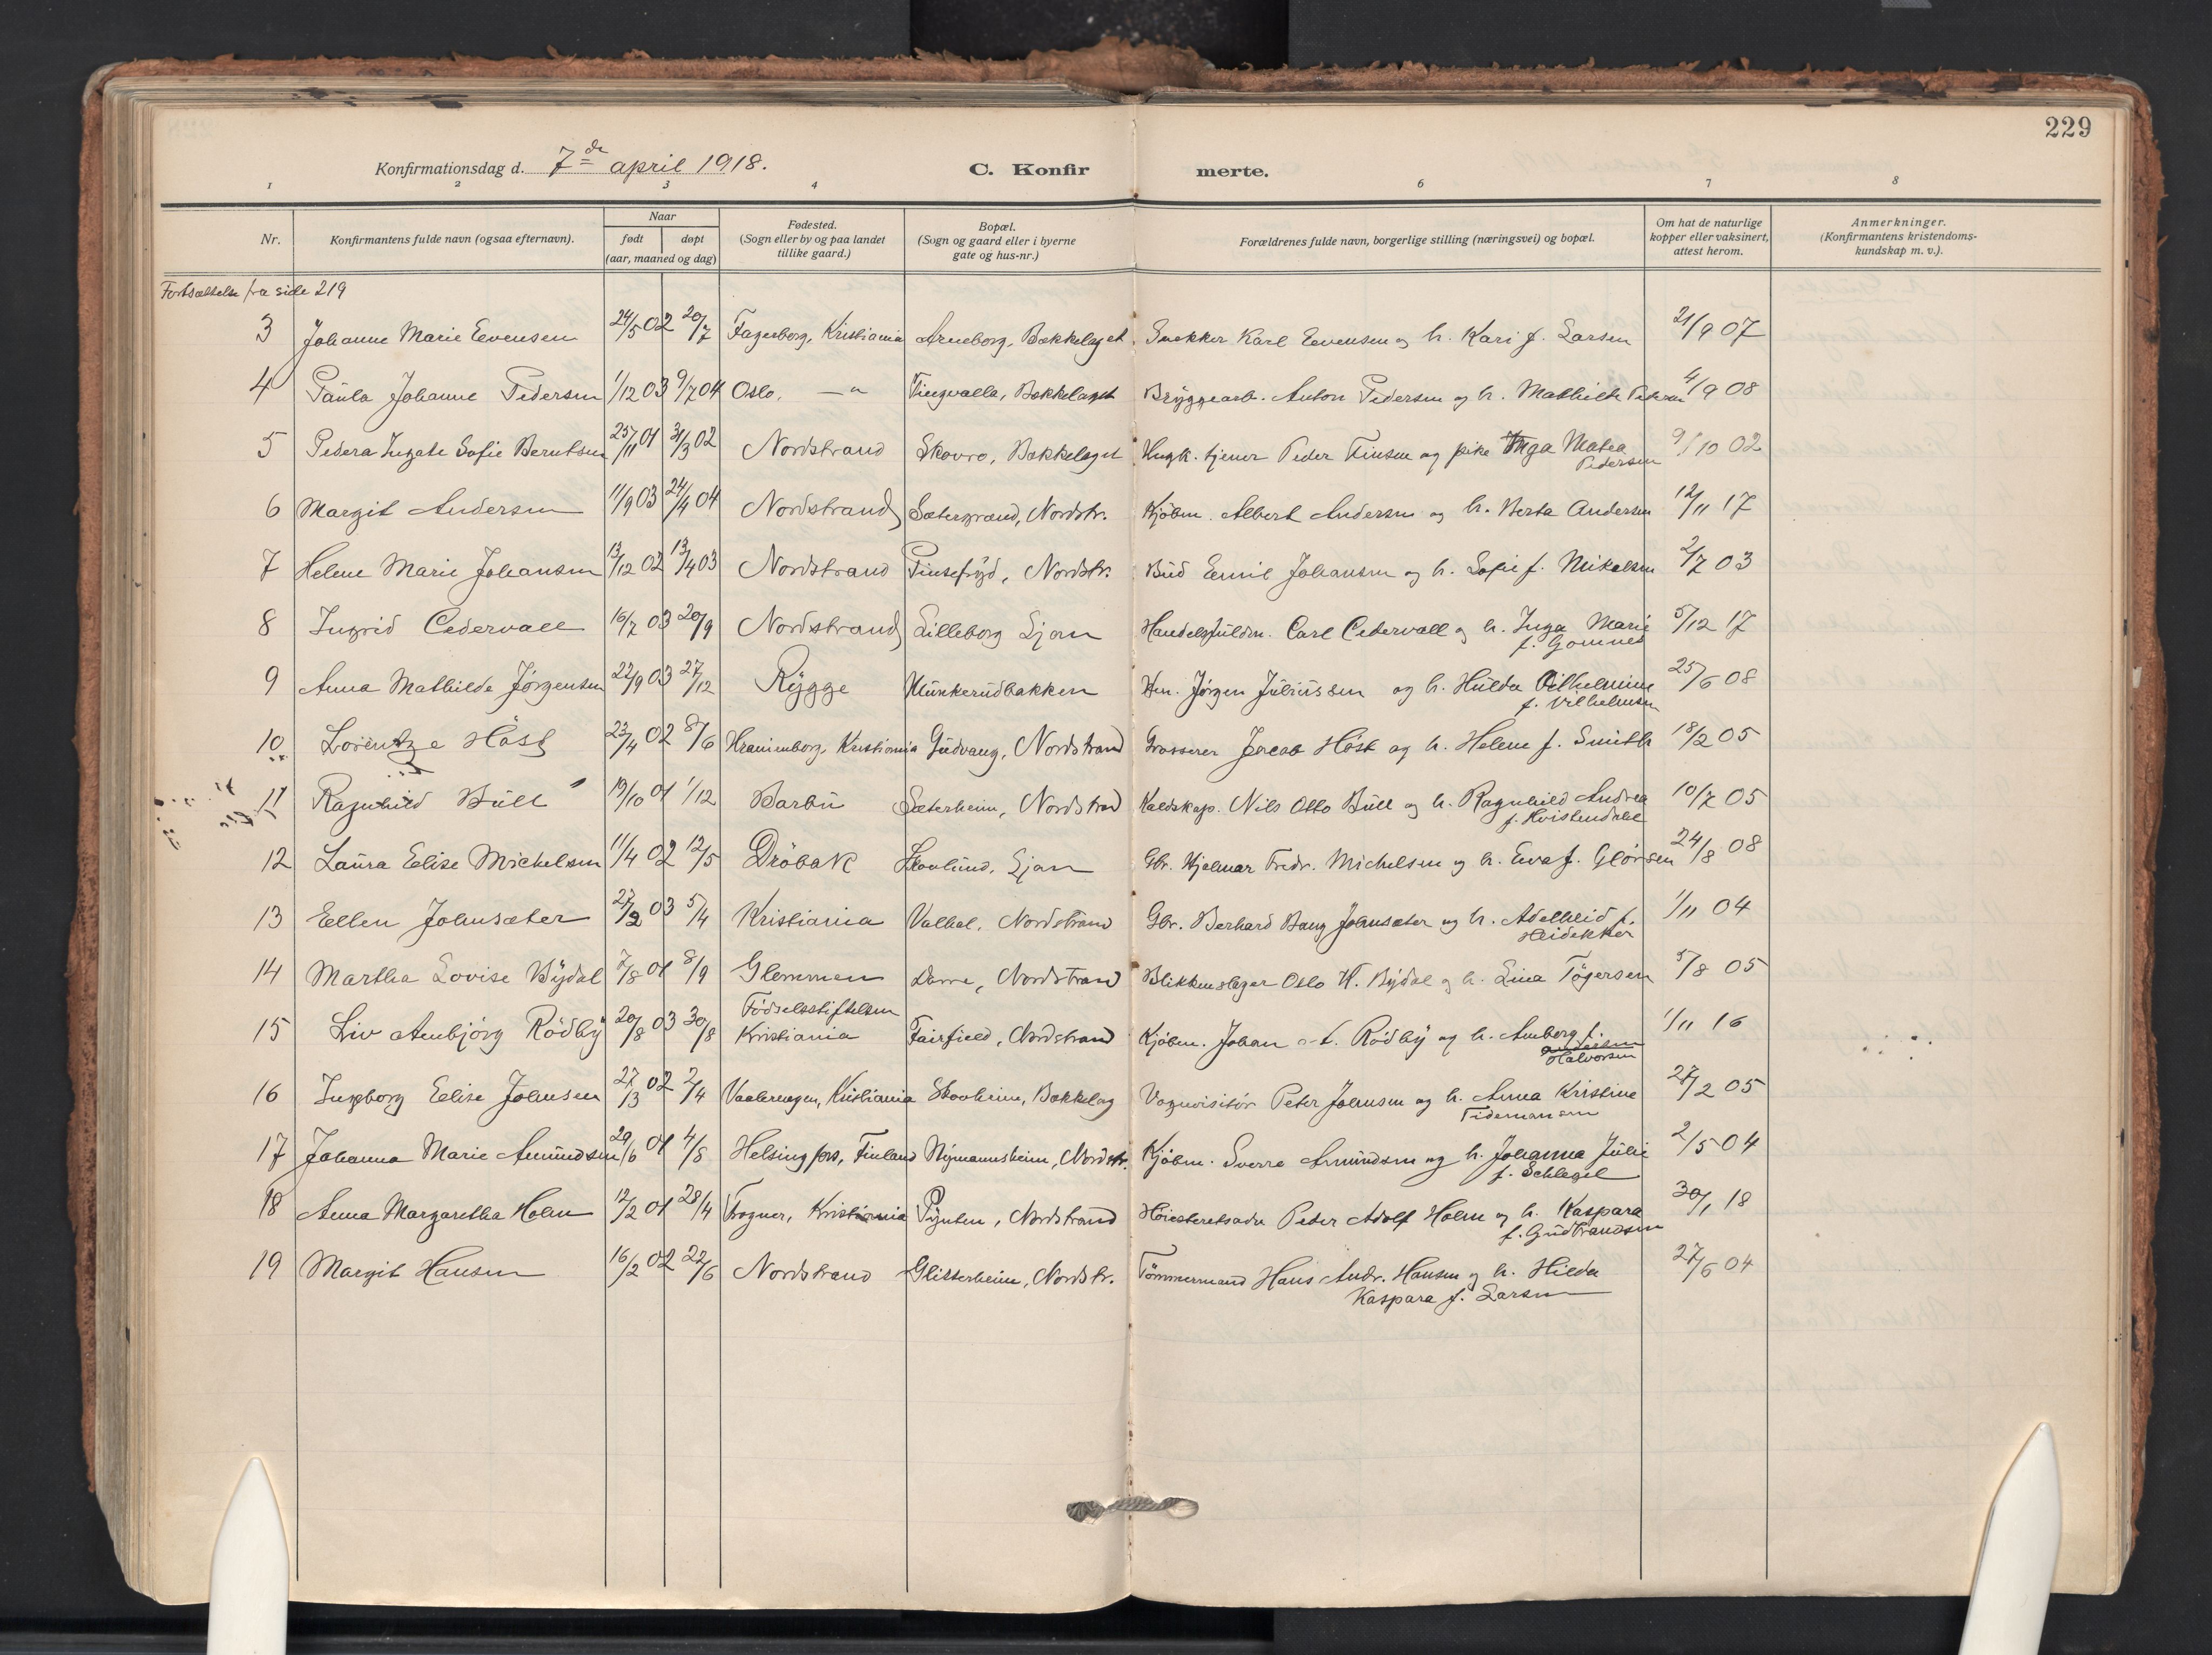 229
Konfirmationsdag d. 7de april 1918. C. Konfirmerte.
1 2 3 4 6 7 8
Nr. Konfirmantens fulde navn (ogsaa efternavn). Naar født døpt (aar, maaned og dag) Fødested. (Sogn eller by og paa landet tillike gaard.) Bopæl. (Sogn og gaard eller i byerne gate og hus-nr.) Forældrenes fulde navn, borgerlige stilling (næringsvei) og bopæl. Om hat de naturlige kopper eller vaksinert, attest herom. Anmerkninger. (Konfirmantens kristendoms-kundskap m. v.).
Fortsættelse fra side 219
3 Johanne Marie Evensen 24/5 02 20/7 Fagerborg, Kristiania Arneborg, Bækkelaget Snekker Karl Evensen og h. Kari f. Larsen 21/9 07
4 Paula Johanne Pedersen 1/12 03 9/7 04 Oslo, — " Tingvalla, Bækkelaget Bryggearb. Anton Pedersen og h. Mathilde Pedersen 4/9 08
5 Pedera Ingate Sofie Berntsen 25/11 01 31/3 02 Nordstrand Skovro, Bækkelaget tjener Peder Finsen og pike Inga Matea Pedersen 9/10 02
6 Margit Andersen 11/9 03 24/4 04 Nordstrand Sætergrænd, Nordstr. Kjøbm. Albert Andersen og h. Berta Andersen 12/11 17
7 Helene Marie Johansen 13/12 02 13/4 03 Nordstrand Pinsefryd, Nordstr. Bud Emil Johansen og h. Sofie f. Mikalsen 2/7 03
8 Ingrid Cedervall 16/7 03 20/9 Nordstrand Lilleborg Ljan Handelsfuldm. Carl Cedervall og h. Inga Marie f. Gomnes 5/12 17
9 Anna Mathilde Jørgensen 22/9 03 27/12 Rygge Munkerudbakken Jørgen Juliussen og h. Hulda Vilhelmine f. Vilhelmsen 25/6 08
10 Lorentze Höst 23/4 02 8/6 Uranienborg, Kristiania Gudvang, Nordstrand Grosserer Jacob Höst og h. Helene f. Smith 18/2 05
11 Ragnhild Bull 19/10 01 1/12 Barbu Sæterheim, Nordstrand Nils Otto Bull og h. Ragnhild Andrea f. Kvistendahl 10/7 05
12 Laura Elise Michelsen 11/4 02 12/5 Dröbak Skovlund, Ljan Gbr. Hjalmar Fredr. Michelsen og h. Eva f. Glörsen 24/8 08
13 Ellen Johnsæter 27/2 03 5/4 Kristiania Valhal, Nordstrand Gbr. Berhard Bang Johnsæter og h. Adelheid f. Heidekker 1/11 04
14 Martha Lovise Bydal 7/8 01 8/9 Glemmen Nordstrand Blikkenslager Oslo H. Bydal og h. Lina Tögersen 5/8 05
15 Liv Annbjörg Rödby 20/8 03 30/8 Födselsstiftelsen Kristiania Fairfield, Nordstrand Kjöbm. Johan A. Rödby og h. Amberg f. Andersen Halvorsen 1/11 16
16 Ingeborg Elise Johnsen 27/3 02 2/4 Vaalerengen, Kristiania Skovheim, Bækkelag Vognvisitör Peter Johnsen og h. Anna Kristine Tidemansen 27/2 05
17 Johanna Marie Amundsen 29/6 01 4/8 Helsingfors, Finland Nymannsheim, Nordstr. Kjöbm. Sverre Amundsen og h. Johanna Julie f. Schlegel 2/5 04
18 Anna Margaretha Holm 12/2 01 28/4 Frogner, Kristiania Pynten, Nordstrand Höiesteretsadv. Peder Adolf Holm og h. Kaspara f. Gudbrandsen 30/1 18
19 Margit Hansen 16/2 02 22/6 Nordstrand Glitterheim, Nordstr. Tömmermand Hans Andr. Hansen og h. Hilda Kaspara f. Larsen 27/6 04